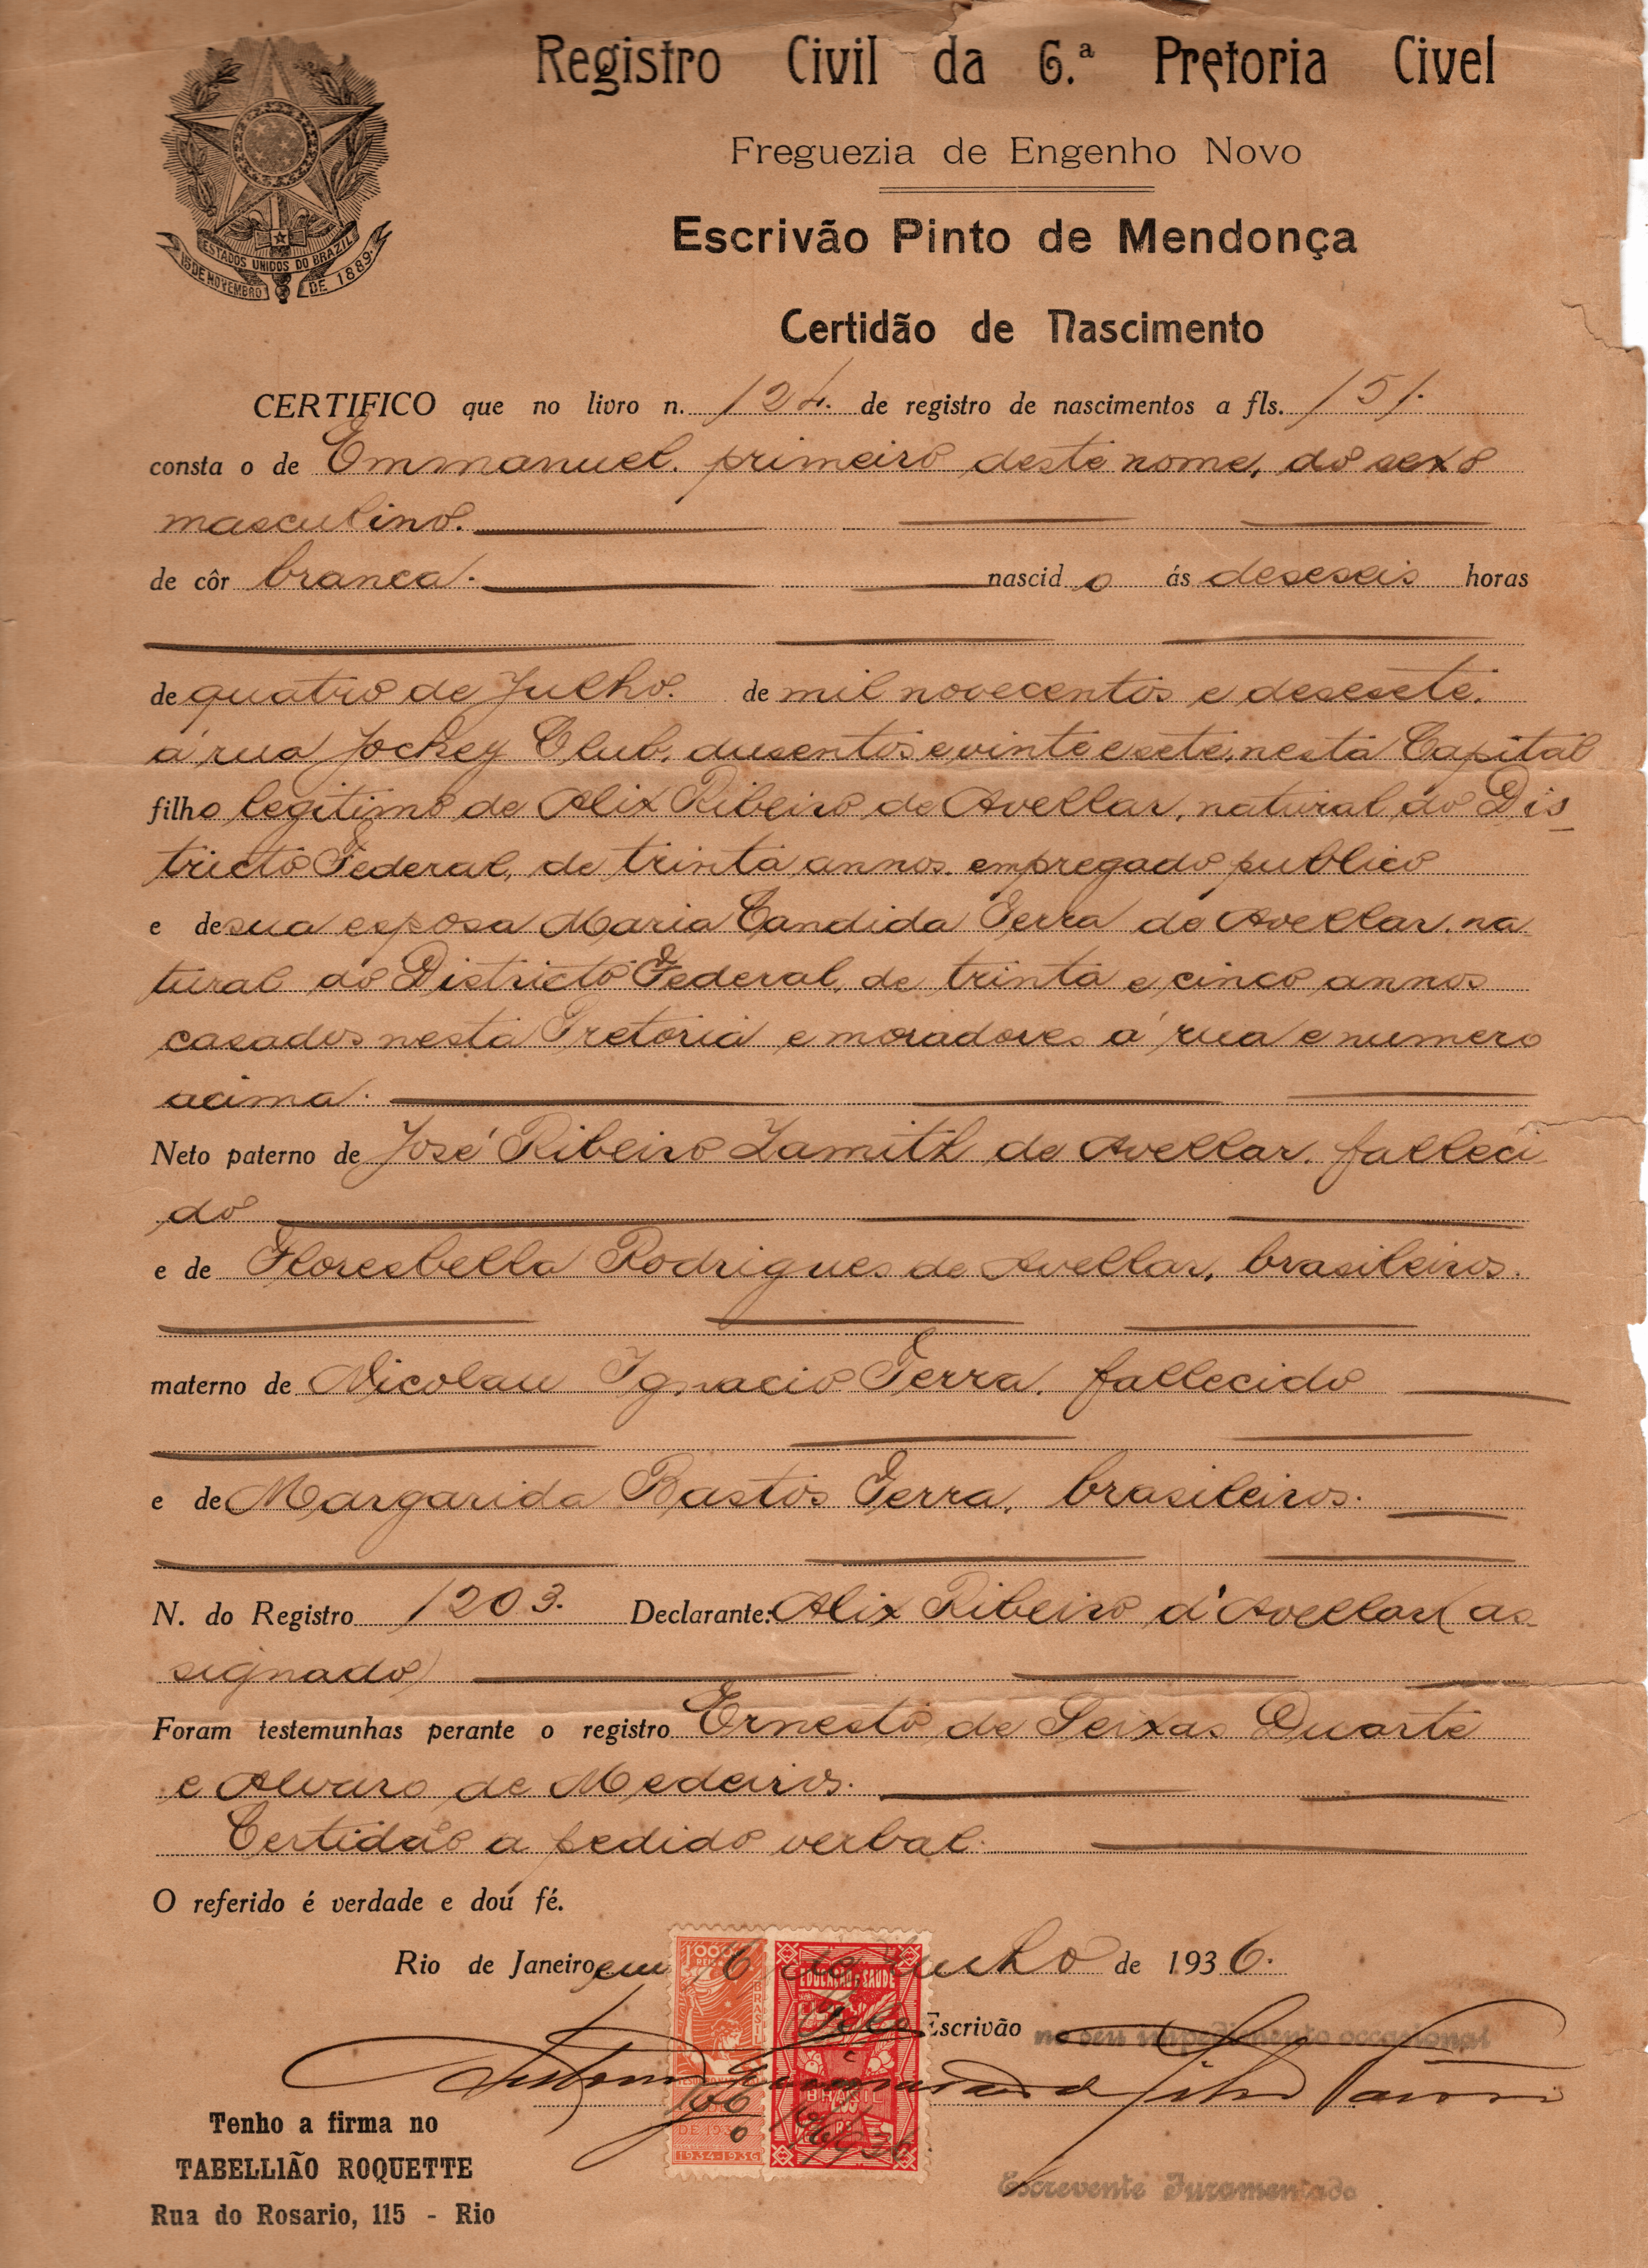 Registro Civil da 6.ª Pretoria Civel
Freguezia de Engenho Novo
Escrivão Pinto de Mendonça
ESTADOS UNIDOS DO BRAZIL
15 DE NOVEMBRO DE 1889
Certidão de Nascimento
CERTIFICO que no livro n. 124. de registro de nascimentos a fls. 151.
consta o de Emmanuel. primeiro deste nome, do sexo
masculino.
de côr branca. nascido ás deseseis horas
de quatro de Julho. de mil novecentos e desesete.
á rua Jockey Club, dusentos e vinte e sete, nesta Capital
filho legitimo de Alix Ribeiro de Avellar, natural do Dis
tricto Federal, de trinta annos. empregado publico
e de sua esposa Maria Candida Terra de Avellar. na
tural do Districto Federal, de trinta e cinco annos
casados nesta Pretoria e moradores á rua e numero
acima.
Neto paterno de José Ribeiro Zamith de Avellar. falleci
do
e de Floresbella Rodrigues de Avellar, brasileiros.
materno de Nicolau Ignacio Terra. fallecido
e de Margarida Bastos Terra, brasileiros.
N. do Registro 1203. Declarante: Alix Ribeiro d'Avellar (as
signado)
Foram testemunhas perante o registro Ernesto de Seixas Duarte
e Alvaro de Medeiros.
Certidão a pedido verbal.
O referido é verdade e dou fé.
Rio de Janeiro, em 16 de Junho de 1936.
1000 REIS
BRASIL
EDUCAÇÃO E SAUDE
Pelo Escrivão no seu impedimento occasional
BRASIL
200 RS
DE 193
1934-1936
Tenho a firma no
TABELLIÃO ROQUETTE
Rua do Rosario, 115 - Rio
Escrevente Juramentado